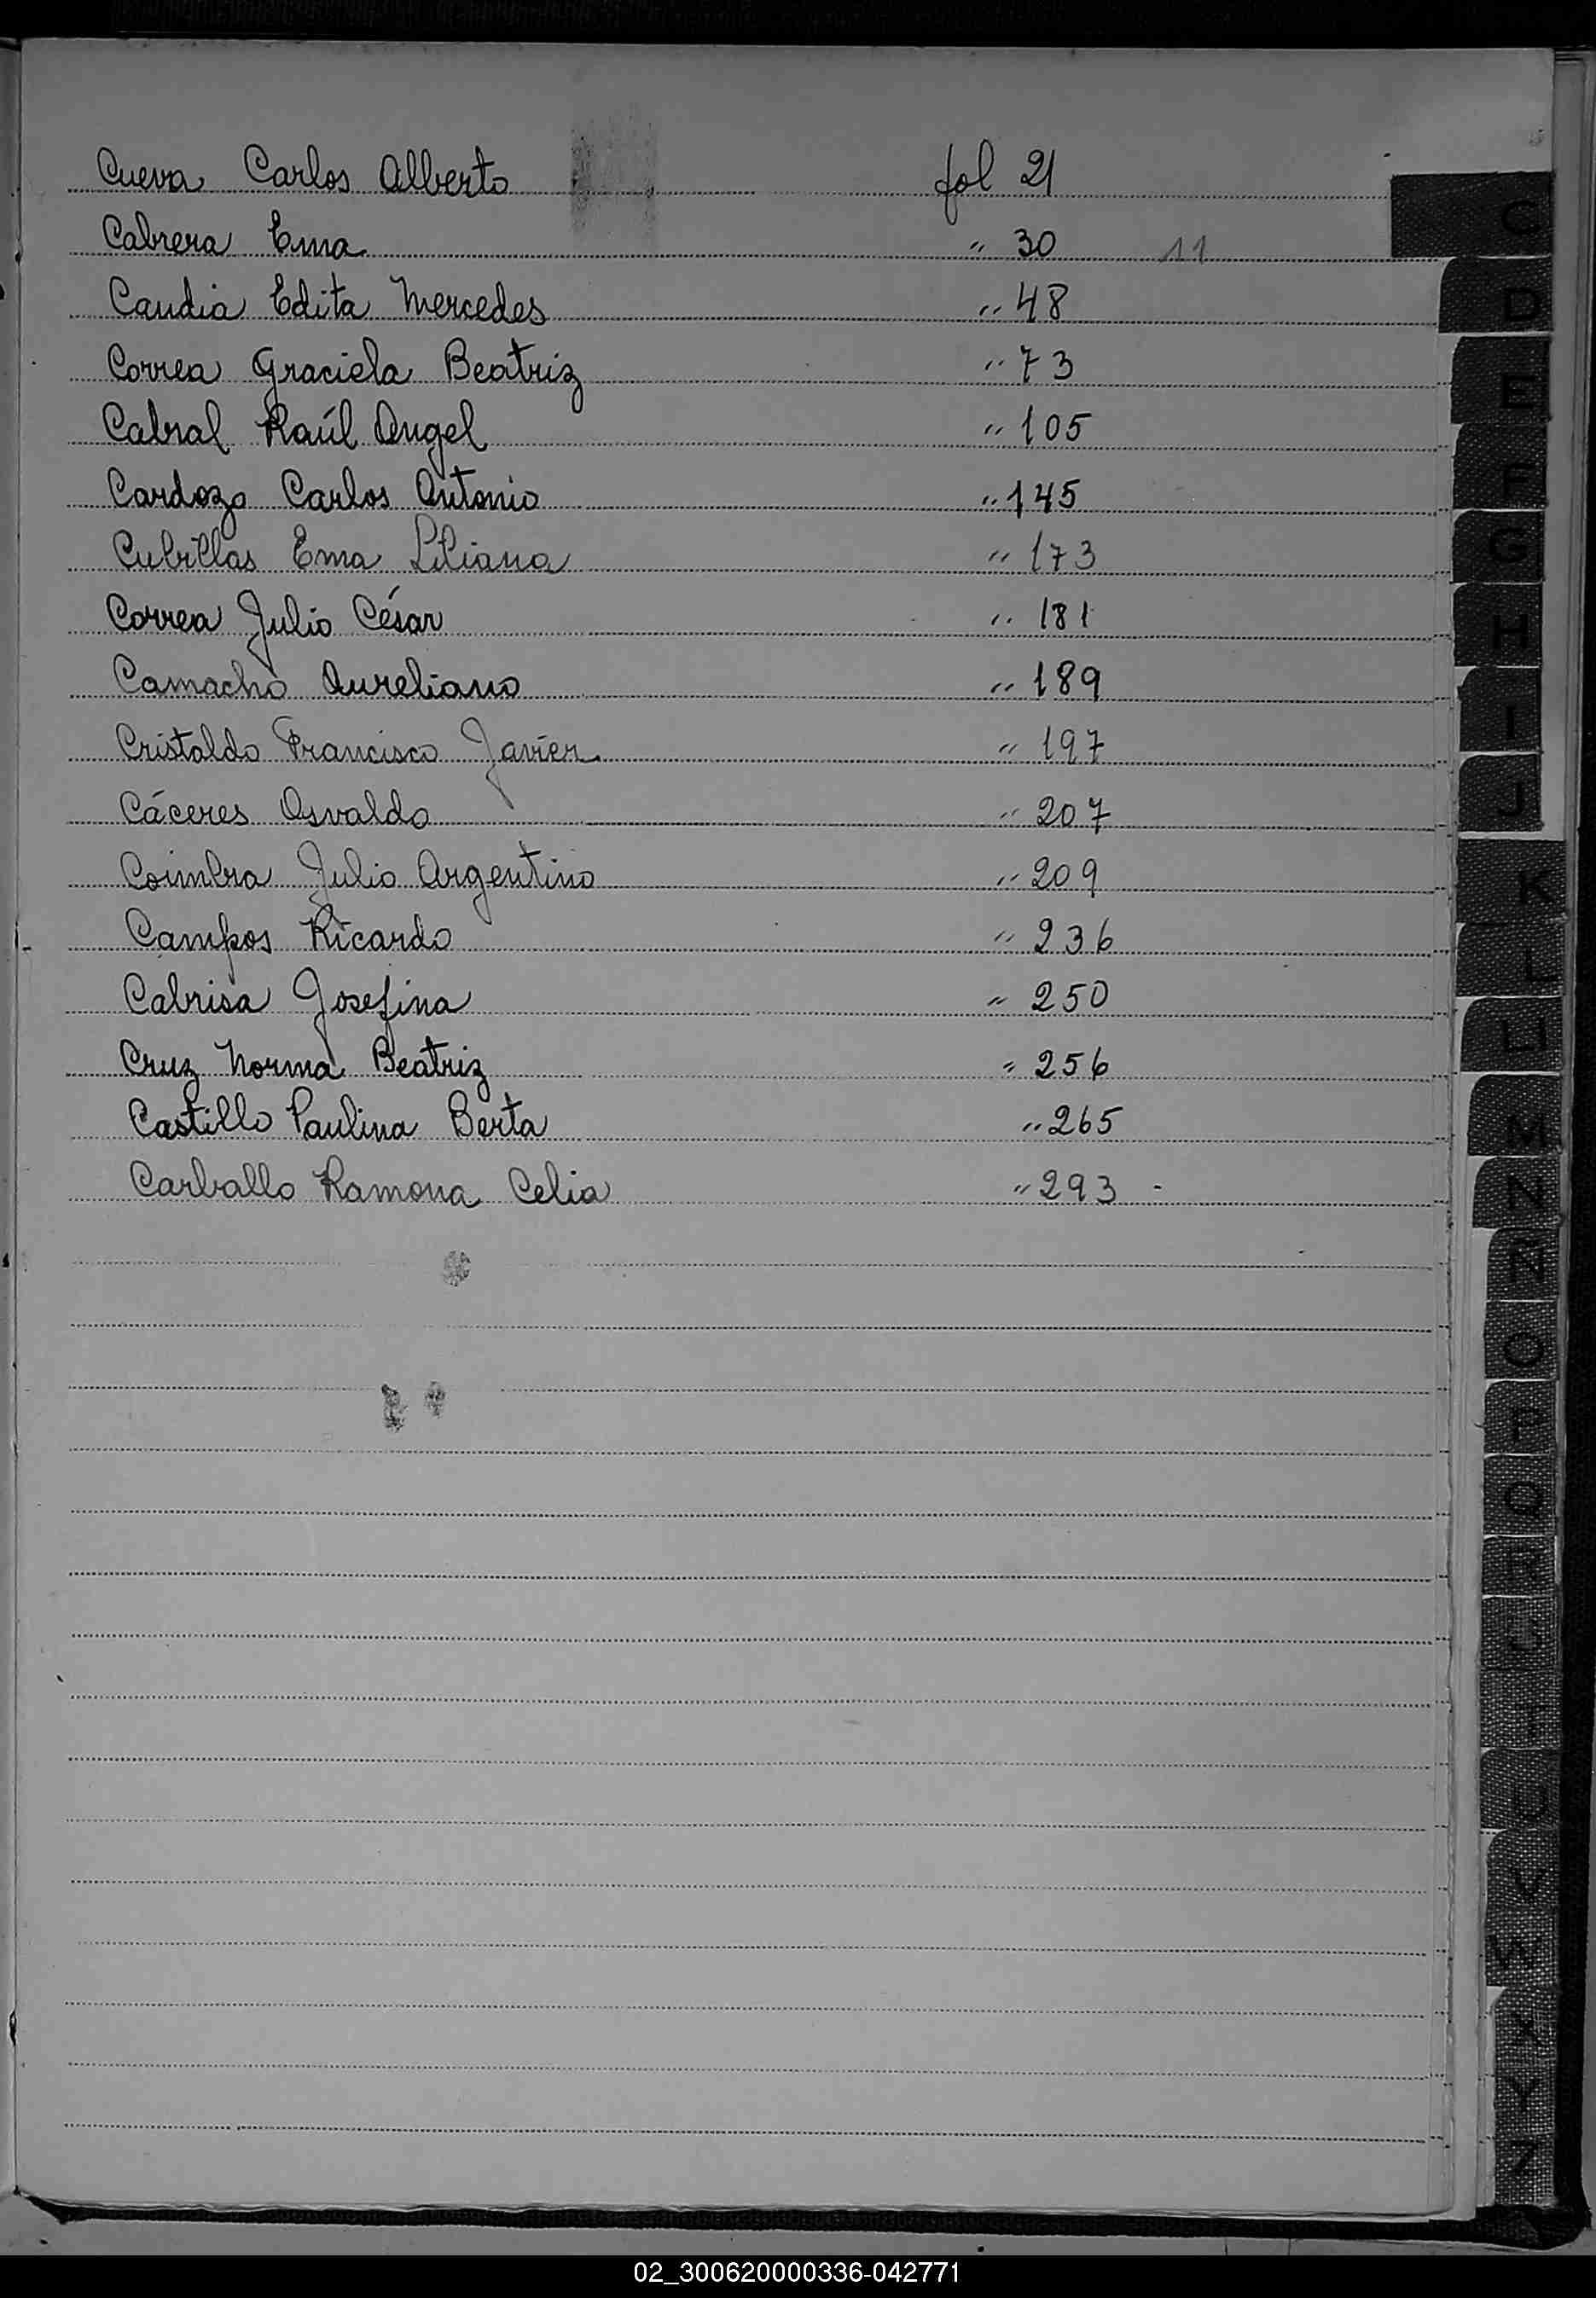 Cueva Carlos Alberto fol 21
Cabrera Ema " 30 11
Candia Edita Mercedes " 48
Correa Graciela Beatriz " 73
Cabral Raúl Angel " 105
Cardozo Carlos Antonio " 145
Cubillas Ema Liliana " 173
Correa Julio César " 181
Camacho Aureliano " 189
Cristaldo Francisco Javier " 197
Cáceres Osvaldo " 207
Coimbra Julio Argentino " 209
Campos Ricardo " 236
Cabrisa Josefina " 250
Cruz Norma Beatriz " 256
Castillo Paulina Berta " 265
Carballo Ramona Celia " 293 -
C
D
E
F
G
H
I
J
K
L
LL
M
N
Ñ
O
P
Q
R
S
T
U
V
W
X
Y
Z
02_300620000336-042771